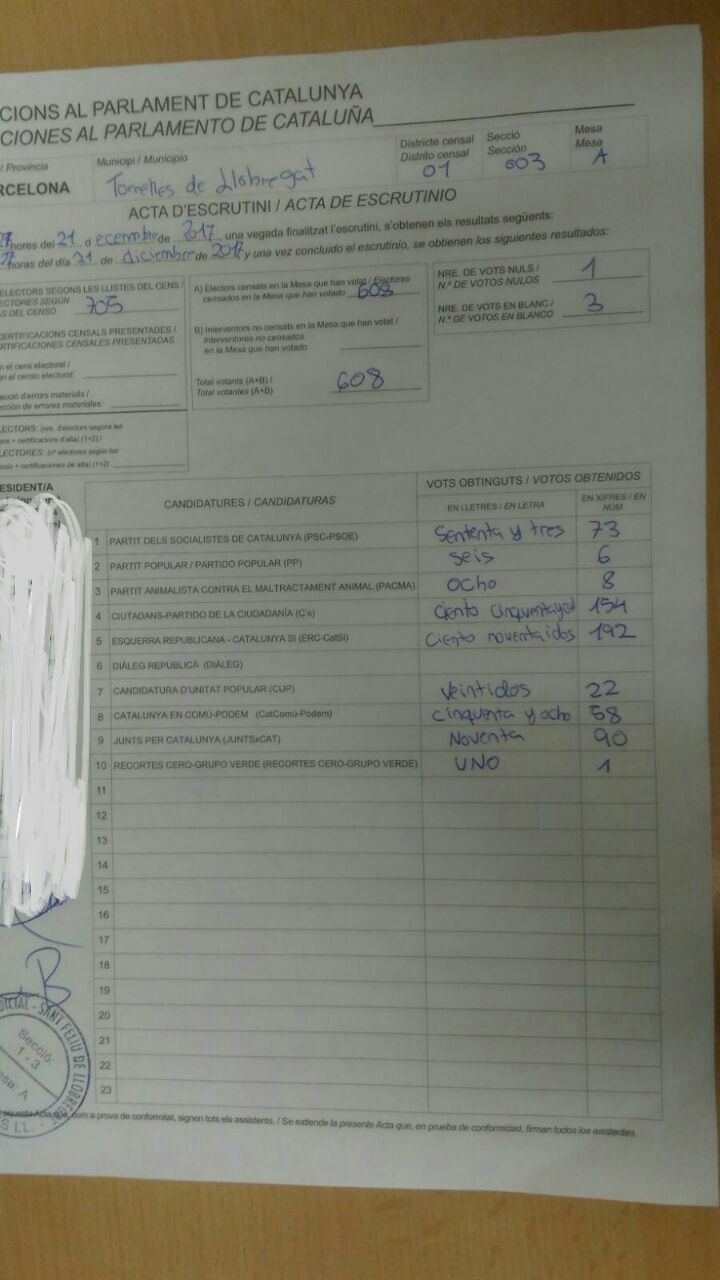 CIONS AL PARLAMENT DE CATALUNYA
CIONES AL PARLAMENTO DE CATALUÑA
/ Provincia Municipi / Municipio Districte censal Distrito censal Secció Sección Mesa Mesa
RCELONA Torrelles de Llobregat 01 003 A
ACTA D'ESCRUTINI / ACTA DE ESCRUTINIO
hores del 21 d ecembre de 2017, una vegada finalitzat l'escrutini, s'obtenen els resultats següents:
horas del día 21 de diciembre de 2017 y una vez concluido el escrutinio, se obtienen los siguientes resultados:
ELECTORS SEGONS LES LLISTES DEL CENS /
ECTORES SEGÚN
AS DEL CENSO 705
CERTIFICACIONS CENSALS PRESENTADES /
RTIFICACIONES CENSALES PRESENTADAS
n el cens electoral /
en el censo electoral:
ecció d'errors materials /
cción de errores materiales:
LECTORS: (nre. d'electors segons les
ens + certificacions d'alta) (1+2) /
LECTORES: (nº electores según las
enso + certificaciones de alta) (1+2)
A) Electors censats en la Mesa que han votat / Electores
censados en la Mesa que han votado 608
B) Interventors no censats en la Mesa que han votat /
Interventores no censados
en la Mesa que han votado
Total votants (A+B) /
Total votantes (A+B) 608
NRE. DE VOTS NULS /
N.º DE VOTOS NULOS 1
NRE. DE VOTS EN BLANC /
N.º DE VOTOS EN BLANCO 3
ESIDENT/A
CANDIDATURES / CANDIDATURAS
VOTS OBTINGUTS / VOTOS OBTENIDOS
EN LLETRES / EN LETRA EN XIFRES / EN NÚM.
1 PARTIT DELS SOCIALISTES DE CATALUNYA (PSC-PSOE) Sententa y tres 73
2 PARTIT POPULAR / PARTIDO POPULAR (PP) seis 6
3 PARTIT ANIMALISTA CONTRA EL MALTRACTAMENT ANIMAL (PACMA) ocho 8
4 CIUTADANS-PARTIDO DE LA CIUDADANÍA (C's) ciento 154
5 ESQUERRA REPUBLICANA - CATALUNYA SÍ (ERC-CatSí) Ciento noventaidos 192
6 DIÀLEG REPUBLICÀ (DIÀLEG)
7 CANDIDATURA D'UNITAT POPULAR (CUP) veintidos 22
8 CATALUNYA EN COMÚ-PODEM (CatComú-Podem) cinquenta y ocho 58
9 JUNTS PER CATALUNYA (JUNTSxCAT) Noventa 90
10 RECORTES CERO-GRUPO VERDE (RECORTES CERO-GRUPO VERDE) UNO 1
11
12
13
14
15
16
17
18
19
20
21
22
23
SANT FELIU DE LLOBRE
Secció:
1 - 3
esa: A
com a prova de conformitat, signen tots els assistents. / Se extiende la presente Acta que, en prueba de conformidad, firman todos los asistentes.